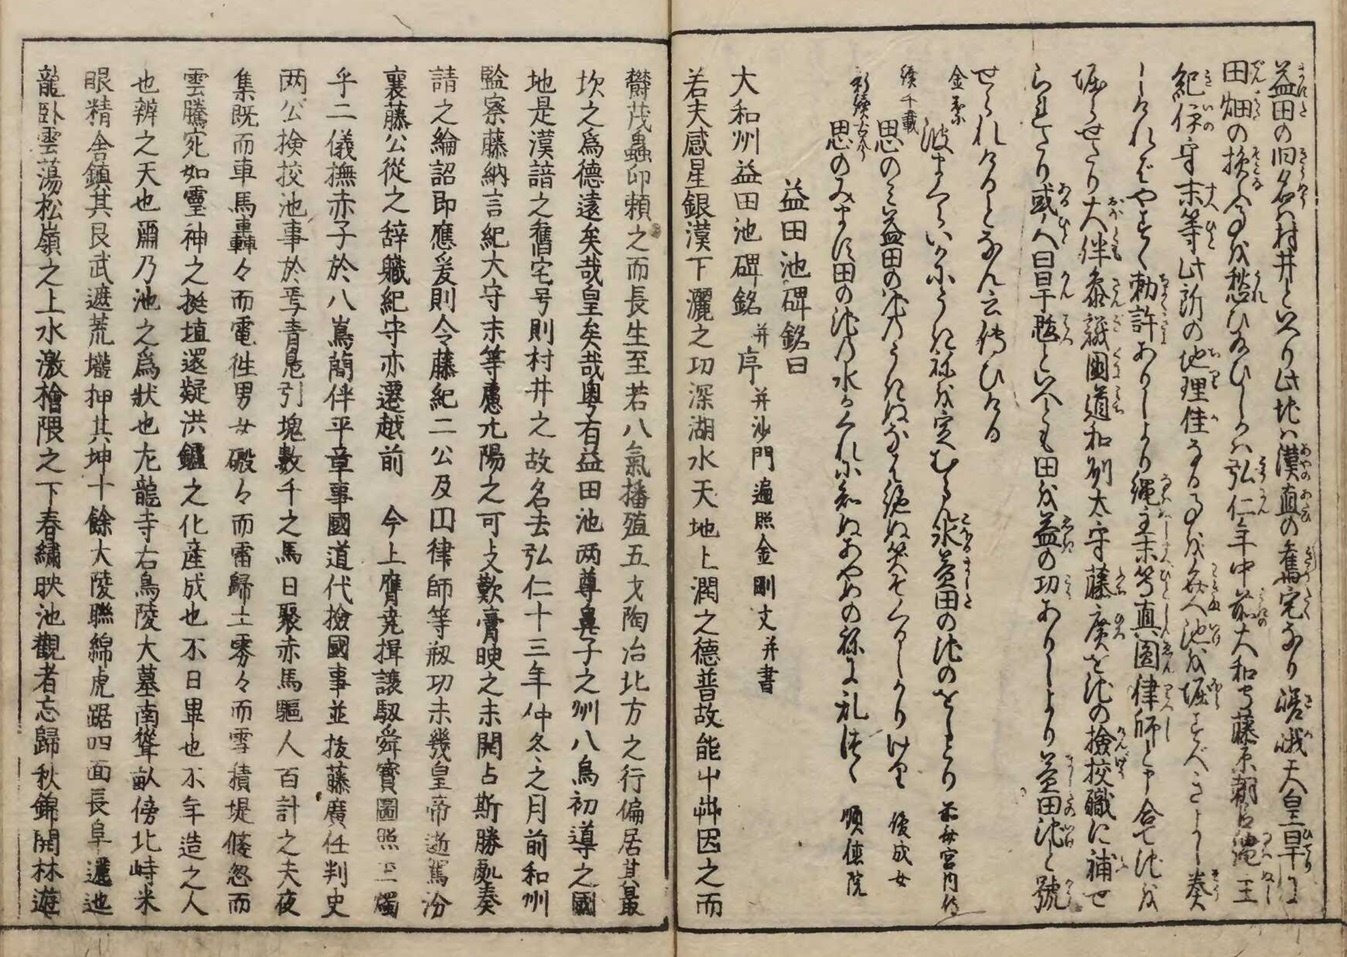 益田の旧名は村井といへり此地は漢直の奮宅なり嵯峨天皇旱に
田畑の損ることを愁ひ給ひしかは弘仁年中前大和守藤原朝臣縄主
紀伊守末等此所の地理佳なる事を奏へ池を堀すべきよし奏
しけれバやすく勅許ありしより縄主末等真圓律師と力を合て池を
堀らせたり大伴参議國道和列太守藤廣を池の撿挍職に補せ
られたり或人曰旱魃といへども田を益の功ありしより益田池と號
せられけるとなん云伝ひける
金葉 波まくらいかにうきねを定むらん氷益田の池のをしとり 前斎宮内侍
続千載 思のミ益田の池のうきぬなは絶ぬ契そくるしかりける 俊成女
新續古今 思のみます田の池の水かくれに知ぬあやめの袮に乱つゝ 順徳院
益田池碑銘曰
大和州益田池碑銘 并序 并沙門遍照金剛文并書
若夫感星銀漢下灑之功深湖水天地上潤之德普故能中艸因之而
欝茂蟲卬頼之而長生至若八氣播殖五才陶冶北方之行偏居其最
坎之爲德遠矣哉皇矣哉粤有益田池两尊鼻子之州八烏初導之國
地是漢諳之舊宅号則村井之故名去弘仁十三年仲冬之月前和州
監察藤納言紀大守末等慮亢陽之可支歎膏腴之未開占斯勝處奏
請之綸詔即應爰則令藤紀二公及円律師等剏功未幾皇帝逝駕汾
襄藤公從之辞職紀守亦遷越前　今上膺堯揖讓馭舜寳圖照玉燭
乎二儀撫赤子於八嶌簡伴平章事國道代撿國事並抜藤廣任判史
两公撿挍池事於焉青鳧引塊數千之馬日聚赤馬驅人百計之夫夜
集既而車馬轟々而電徃男女磤々而雷歸土雰々而雪積堤倏忽而
雲騰宛如靈神之挻埴還疑洪鑪之化産成也不日畢也不年造之人
也辨之天也爾乃池之爲状也左龍寺右鳥陵大墓南聳畝傍北峙米
眼精舎鎮其艮武遮荒壠押其坤十餘大陵聯綿虎踞四面長阜邐迤
龍卧雲蕩松嶺之上水激檜隈之下春繡映池觀者忘歸秋錦開林遊